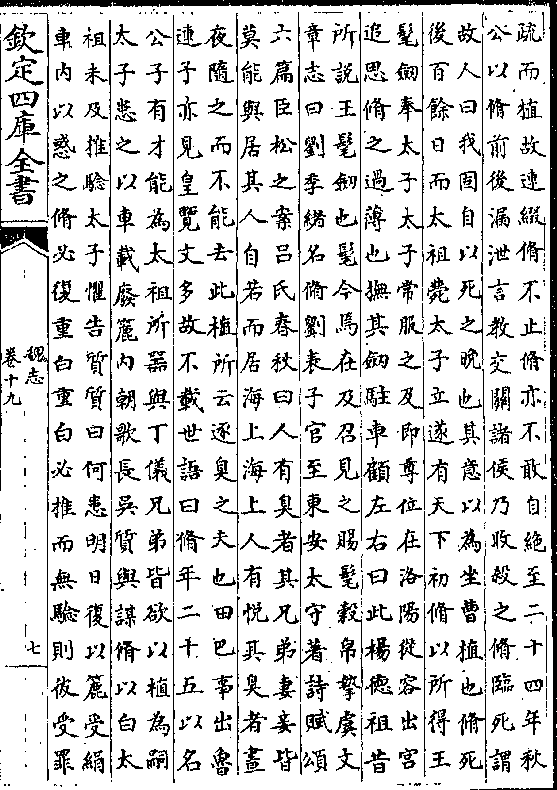 疏而植故連綴脩不止脩亦不敢自絶至二十四年秋
公以脩前後漏泄言教交關諸侯乃收殺之脩臨死謂
故人曰我固自以死之晚也其意以為坐曹植也脩死
後百餘日而太祖薨太子立遂有天下初脩以所得王
髦劔奉太子太子常服之及即尊位在洛陽從容出宮
追思脩之過薄也撫其劔駐車顧左右曰此楊德祖昔
所説王髦劔也髦今焉在及召見之賜髦穀帛摯虞文
章志曰劉季緒名脩劉表子官至東安太守著詩賦頌
六篇臣松之案呂氏春秋曰人有臭者其兄弟妻妾皆
莫能與居其人自若而居海上海上人有悦其臭者晝
夜隨之而不能去此植所云逐臭之夫也田巴事出魯
連子亦見皇覽文多故不載世語曰脩年二十五以名
公子有才能為太祖所器與丁儀兄弟皆欲以植為嗣
太子患之以車載廢簏内朝歌長吳質與謀脩以白太
祖未及推驗太子懼告質質曰何患明日復以簏受絹
車内以惑之脩必復重白重白必推而無驗則彼受罪
欽定四庫全書
魏志
卷十九
七